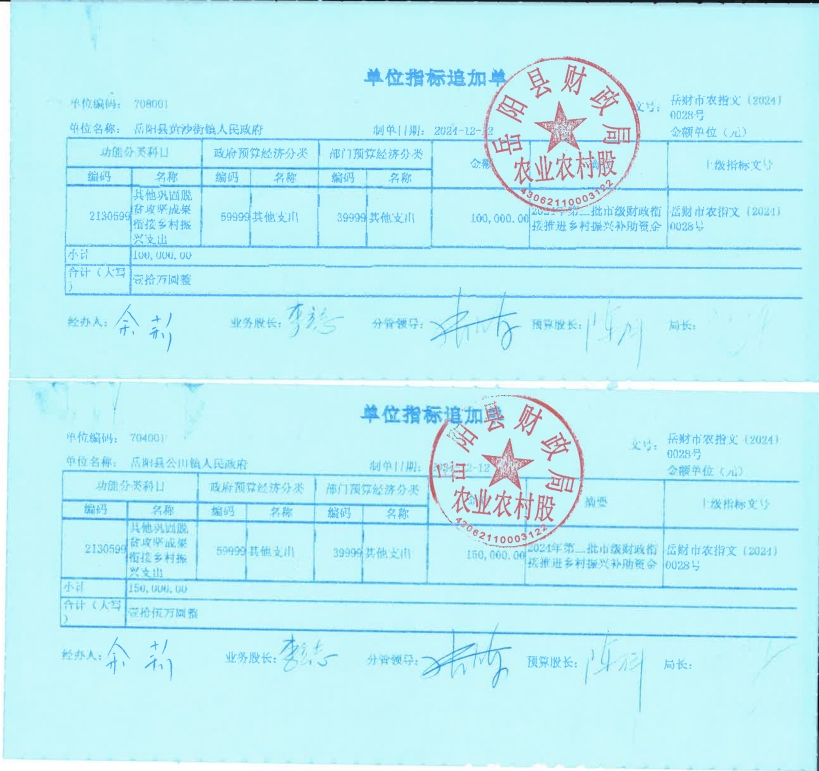 单位指标追加单
单位编码: 708001
文号: 岳财市农指文（2024）
0028号
单位名称: 岳阳县黄沙街镇人民政府 制单日期: 2024-12-12 金额单位（元）
功能分类科目 政府预算经济分类 部门预算经济分类 金额 上级指标文号
编码 名称 编码 名称 编码 名称
2130599 其他巩固脱贫攻坚成果衔接乡村振兴支出 59999 其他支出 39999 其他支出 100,000.00 2024年第二批市级财政衔接推进乡村振兴补助资金 岳财市农指文（2024）0028号
小计 100,000.00
合计（大写） 壹拾万圆整
经办人: 余莉 业务股长: 分管领导: 预算股长: 局长:
岳阳县财政局
农业农村股
43062110003122
单位指标追加单
单位编码: 704001
文号: 岳财市农指文（2024）
0028号
单位名称: 岳阳县公田镇人民政府 制单日期: 2024-12-12 金额单位（元）
功能分类科目 政府预算经济分类 部门预算经济分类 摘要 上级指标文号
编码 名称 编码 名称 编码 名称
2130599 其他巩固脱贫攻坚成果衔接乡村振兴支出 59999 其他支出 39999 其他支出 150,000.00 2024年第二批市级财政衔接推进乡村振兴补助资金 岳财市农指文（2024）0028号
小计 150,000.00
合计（大写） 壹拾伍万圆整
经办人: 余莉 业务股长: 分管领导: 预算股长: 局长:
岳阳县财政局
农业农村股
43062110003122